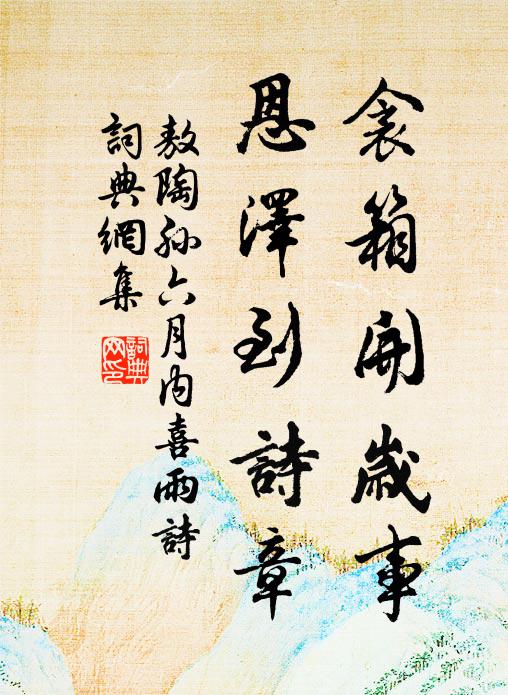 衾箱開歲事
恩澤到詩章
敖陶孫六月內喜雨詩
詞典網集
詞典網印